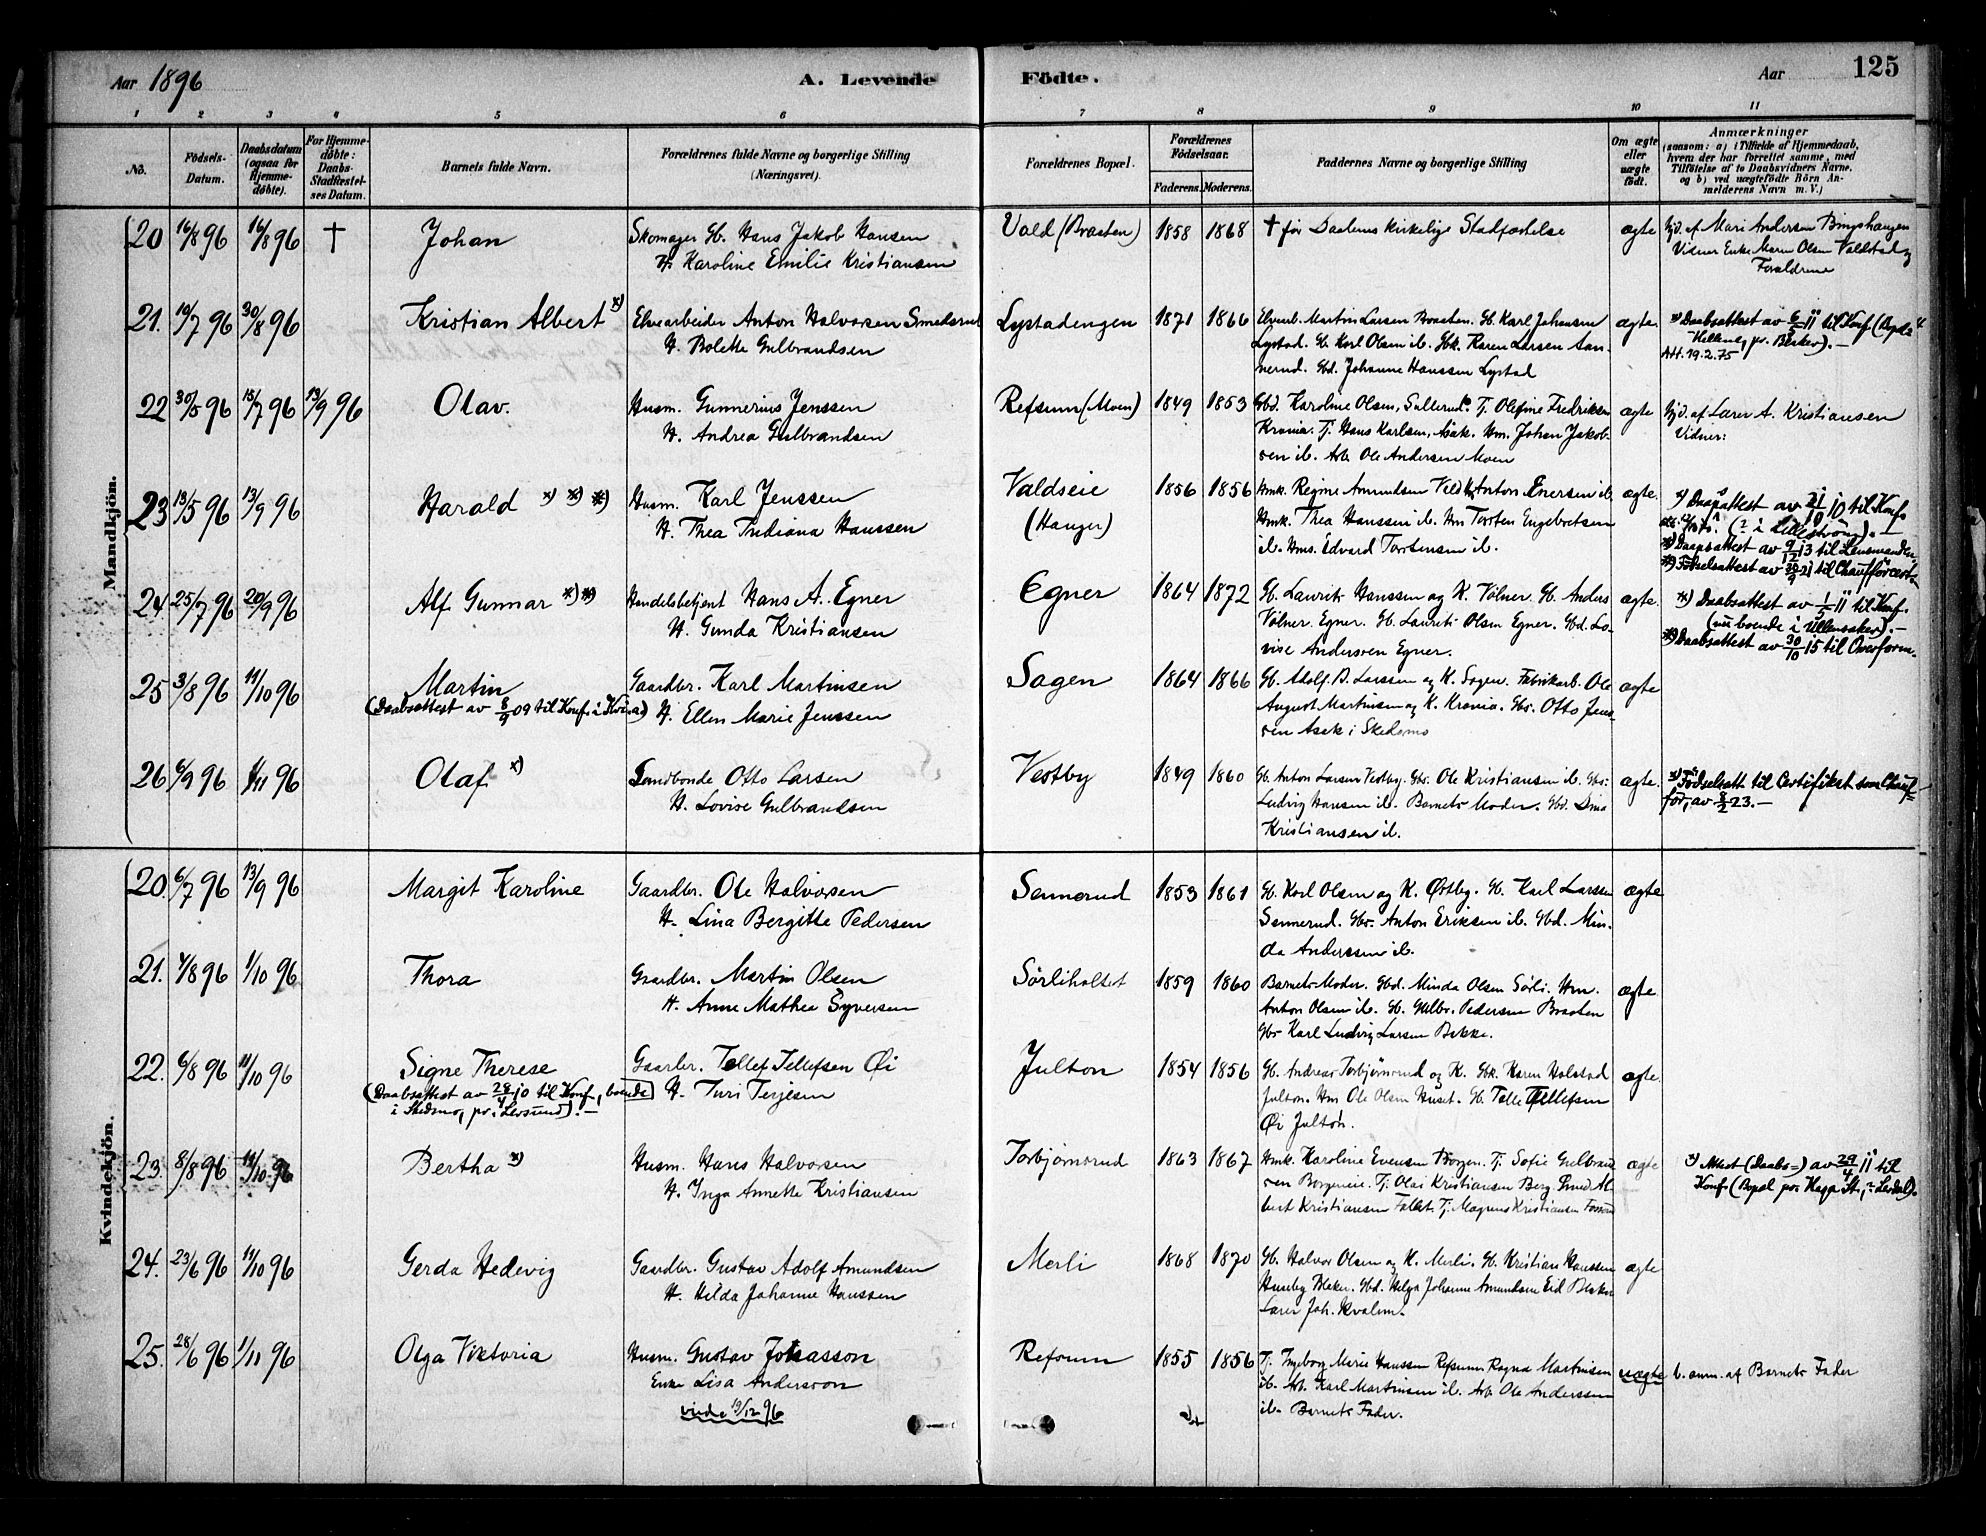 Aar 1896
A. Levende
Födte.
Aar
125
1 2 3 4 5 6 7 8 9 10 11
No.
Födsels-
Datum.
Daabsdatum
(ogsaa for
Hjemme-
döbte).
For Hjemme-
döbte:
Daabs-
Stadfæstel-
ses Datum.
Barnets fulde Navn.
Forældrenes fulde Navne og borgerlige Stilling
(Næringsvei).
Forældrenes Bopæl.
Forældrenes
Födselsaar.
Faderens. Moderens.
Faddernes Navne og borgerlige Stilling
Om ægte
eller
uægte
födt.
Anmærkninger
(saasom: a) i Tilfælde af Hjemmedaab,
hvem der har forrettet samme, med
Tilföielse af to Daabsvidners Navne,
og b) ved uægtefödte Börn An-
melderens Navn m. V.)
Mandkjön.
20 16/8 96 16/8 96 † Johan
Skomager Gb. Hans Jakob Hansen
H. Karoline Emilie Kristiansen
Vald (Braaten) 1858 1868
† før Daabens kirkelige Stadfæstelse
ægte
Hjd. af Mari Andersen Bingshaugen
Vidner Enke Maren Olsen Valdstad og
Forældrene
21. 19/7 96 30/8 96 Kristian Albert *)
Elvearbeider Anton Halvorsen Smedsrud
H. Bolette Gulbrandsen
Lystadengen 1871 1866
Elvearb. Martin Larsen Braaten. Gb. Karl Johansen
Lystad. Gb. Karl Olsen ib. Gbk. Karen Larsen
Gbd. Johanne Hanssen Lystad
ægte.
*) Daabsattest av til Konf.
Att. 19.2.75
22 30/5 96 15/7 96 13/9 96 Olav.
Husm. Gunnerius Jenssen
H. Andrea Gulbrandsen
Refsum (Moen) 1849 1853
Gbd. Karoline Olsen, Sullerud. Tj. Olefine Fredriksen
Krania. Tj. Hans Karlsen, Asak. Hm. Johan Jakob-
sen ib. Arb. Ole Andersen Moen
ægte
Hjd. af Lærer A. Kristiansen
Vidner:
23 13/5 96 13/9 96 Harald *) *) *)
Husm. Karl Jenssen
H. Thea Indiana Hanssen
Valdseie
(Hanger)
1856 1856
Hmk. Regine Amundsen Anton Enersen ib.
Hmk. Thea Hanssen ib. Hm Torsten Engebretsen
ib. Hms. Edvard Torstensen ib.
ægte.
*) Daabsattest av 10 til Konf.
(? i Lilleström). —
*) Daabsattest av 9/12 13 til Lensmanden
*) Födselsattest av 21 til Chaufförcert.
24. 25/7 96 20/9 96 Alf Gunnar *) *)
Handelsbetjent Hans A. Egner
H. Gunda Kristiansen
Egner 1864 1872
Gb. Laurits Hanssen og K. Völner. Gb. Anders
Völner. Egner. Gb. Laurits Olsen Egner. Gbd. Lo-
vise Andersen Egner.
ægte.
*) Daabsattest av 11 til Konf.
(nu boende i Ullensaker). —
*) Daabsattest av 30/10 15 til Overform.
25 3/8 96 11/10 96 Martin
(Daabsattest av 8/9 09 til Konf. i )
Gaardbr. Karl Martinsen
H. Ellen Marie Jenssen
Sagen 1864 1866
Gb. Adolf B. Larssen og K. Sagen. Fabrikarb. Ole
August Martinsen og K. Krania. Gbs. Otto Jens-
sen Asak i Skedsmo
ægte
26 6/9 96 1/11 96 Olaf *)
Landbonde Otto Larsen
H. Lovise Gulbrandsen
Vestby 1849 1860
Gb. Anton Larsen Vestby. Gbs. Ole Kristiansen ib. Gbs.
Ludvig Hansen ib. Barnets Moder. Gbd. Dina
Kristiansen ib.
ægte.
*) Födselsatt til Certifikat som Chauf-
för, av 8/2 23. —
Kvindekjön.
20. 6/7 96 13/9 96 Margit Karoline
Gaardbr. Ole Halvorsen
H. Lina Bergitte Pedersen
Sennerud 1853 1861
Gb. Karl Olsen og K. Østby. Gb. Karl Larssen
Sennerud. Gbs. Anton Eriksen ib. Gbd. Min-
da Anderssen ib.
ægte
21. 4/8 96 1/10 96 Thora
Gaardbr. Martin Olsen
H. Anne Mathea Syversen
Sørliholtet 1859 1860
Barnets Moder. Gbd. Minda Olsen Sørli. Hm.
Anton Olsen ib. Gb. Gulbr. Pedersen Braaten
Gbs Karl Ludvig Larsen Bekke.
ægte.
22. 6/8 96 11/10 96 Signe Therese
(Daabsattest av 28/4 10 til Konf., boende
i Skedsmo, pr. Lersund). —
Gaarbr. Tellef Tellefsen Øi
H. Turi Terjesen
Julton 1854 1856
Gb. Andreas Torbjørnsrud og K. Gbk. Karen Holstad
Julton. Hm Ole Olsen Huset. Gb. Tellef Tellefsen
Øi Julton.
ægte
23. 8/8 96 11/10 96 Bertha *)
Husm. Hans Halvorsen
H. Inga Annette Kristiansen
Torbjørnsrud 1863 1867
Hmk. Karoline Evensen Borgen. Tj. Sofie Gulbrand-
sen Borgeneie. Tj. Olai Kristiansen Berg. Smed Al-
bert Kristiansen Tj. Magnus Kristiansen
ægte
*) Attest (Daabs=) av 29/4 11 til
Konf. (Bopæl pr. Haga St., ).
24. 23/6 96 11/10 96 Gerda Hedevig
Gaardbr. Gustav Adolf Amundsen
H. Hilda Johanne Hanssen
Merli 1868 1870
Gb. Halvor Olsen og K. Merli. Gb. Kristian Hanssen
Huseby Blaker. Gbd. Helga Johanne Amundsen Eid Blaker
Lærer Joh. Kvalem.
ægte
25. 28/6 96 1/11 96 Olga Viktoria
Husm. Gustav Johasson
Enke Lisa Andersson
viede 19/12 96
Refsum 1855 1856
Tj. Ingeborg Marie Hanssen Refsum. Ragna Martinsen
ib. Arb. Karl Martinsen ib. Arb Ole Anderssen
ib. Barnets Fader.
uægte
b. anm. af Barnets Fader